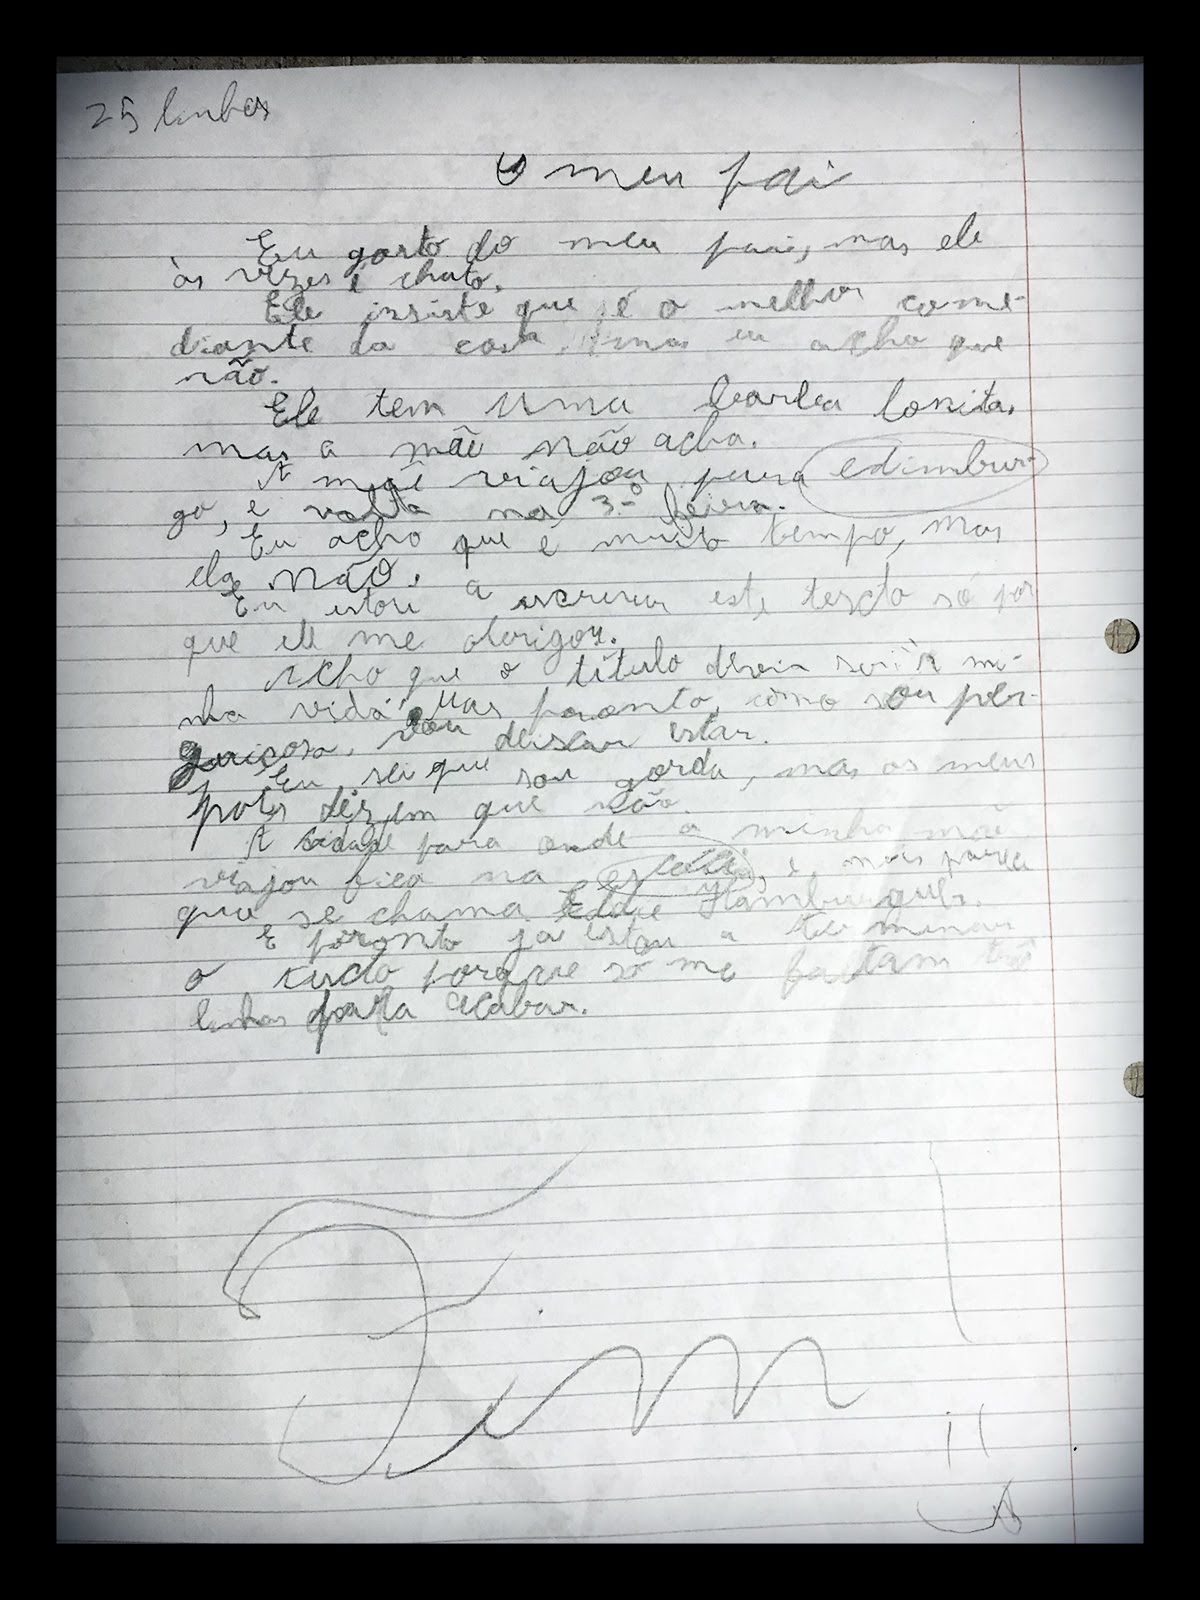 25 linhas
O meu pai
Eu gosto do meu pai, mas ele
às vezes é chato.
Ele insiste que é o melhor come-
diante da casa, mas eu acho que
não.
Ele tem uma barba bonita,
mas a mãe não acha.
A mãe viajou para edimbur-
go, e volta na 3.º feira.
Eu acho que é muito tempo, mas
ela não.
Eu estou a escrever este texto só por
que ele me obrigou.
Acho que o título devia ser "A mi-
nha vida". Mas pronto, como sou per-
guiçosa, vou deixar estar.
Eu sei que sou gorda, mas os meus
pais dizem que não.
A cidade para onde a minha mãe
viajou fica na, e, mais parece
que se chama Hamburguer.
E pronto já estou a terminar
o texto porque só me faltam três
linhas para acabar.
Fim!